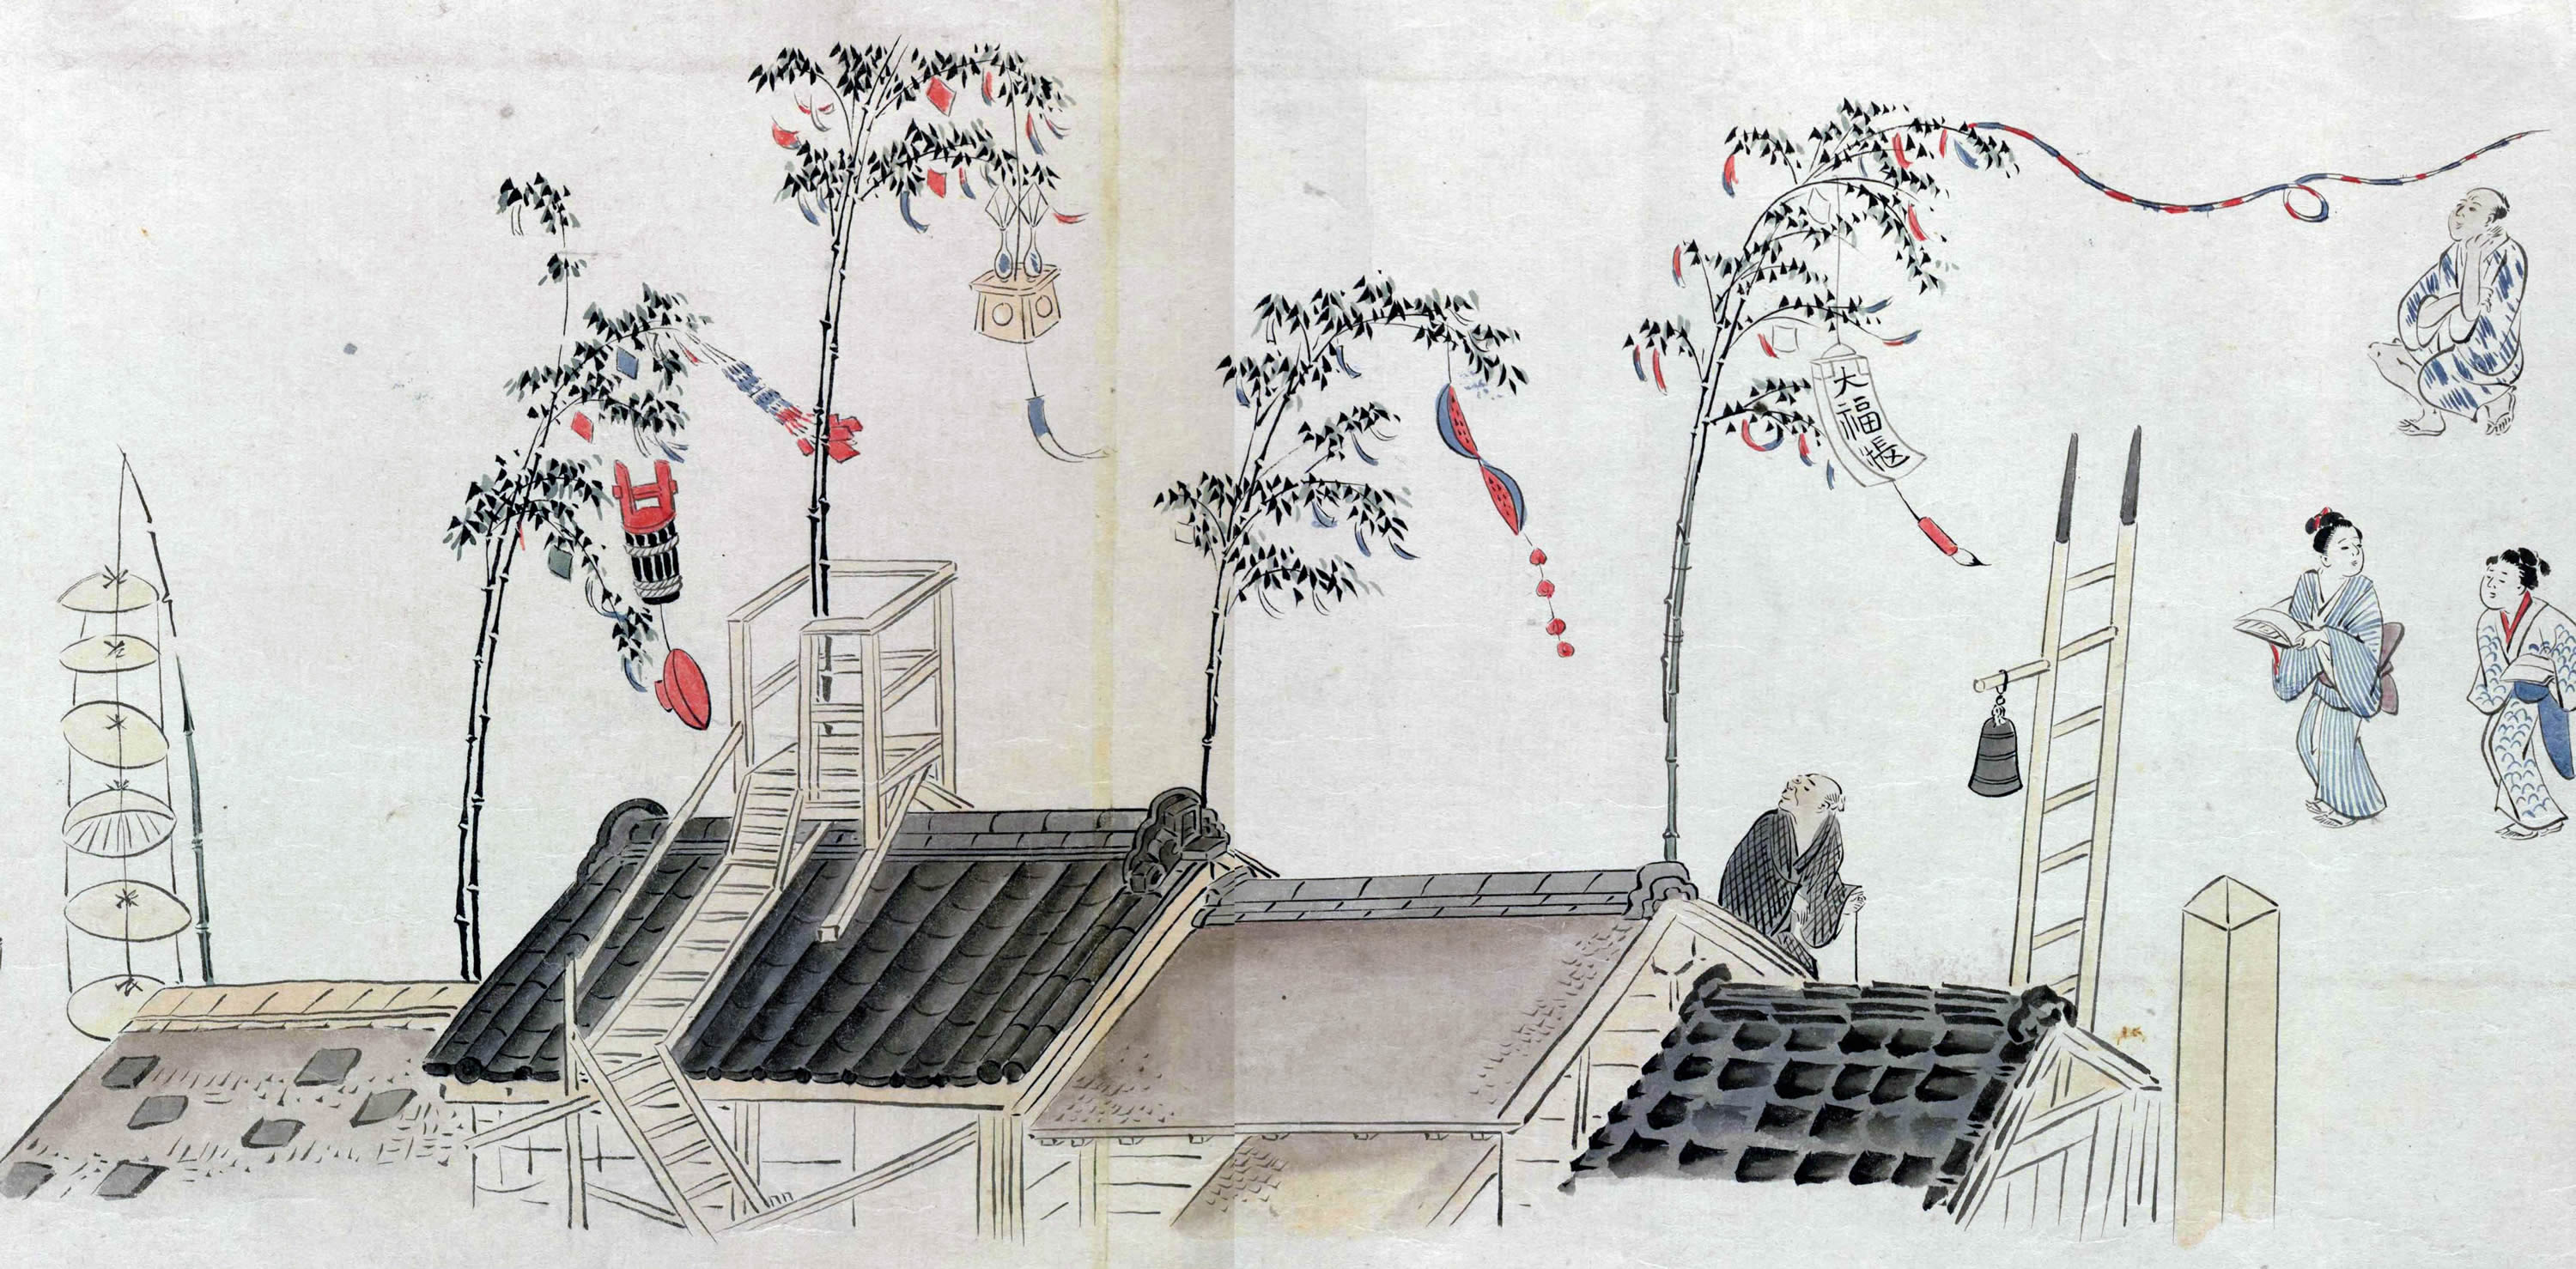 大福帳